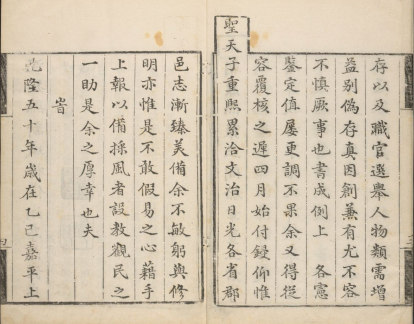 存以及職官選舉人物類需增
益別偽存真因創兼有尤不容
不慎厥事也書成例上　各憲
鑒定值屢更調不果余又得從
容覆核之遲四月始付鋟仰惟
聖天子重熙累洽文治日光各省郡
邑志漸臻美備余不敏躬與修
明亦惟是不敢假易之心藉手
上報以備採風者設教觀民之
一助是余之厚幸也夫
旹
乾隆五十年歲在乙巳嘉平上